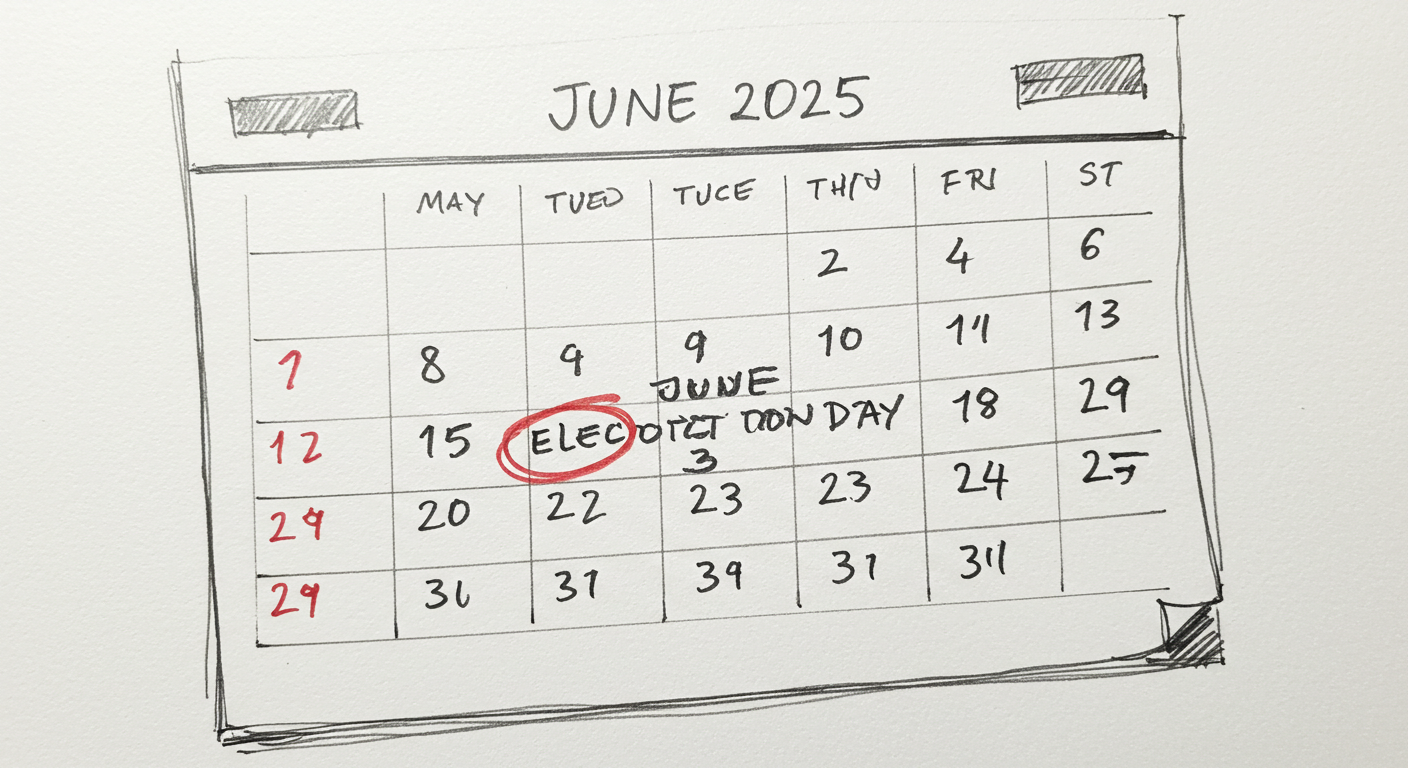 JUNE 2025
MAY TUED TUCE FRI ST
2 4 6
7 8 9 9 10 14 13
JUNE
12 15 ELEC DAY 18 29
3
29 20 22 23 23 24
29 31 39 31